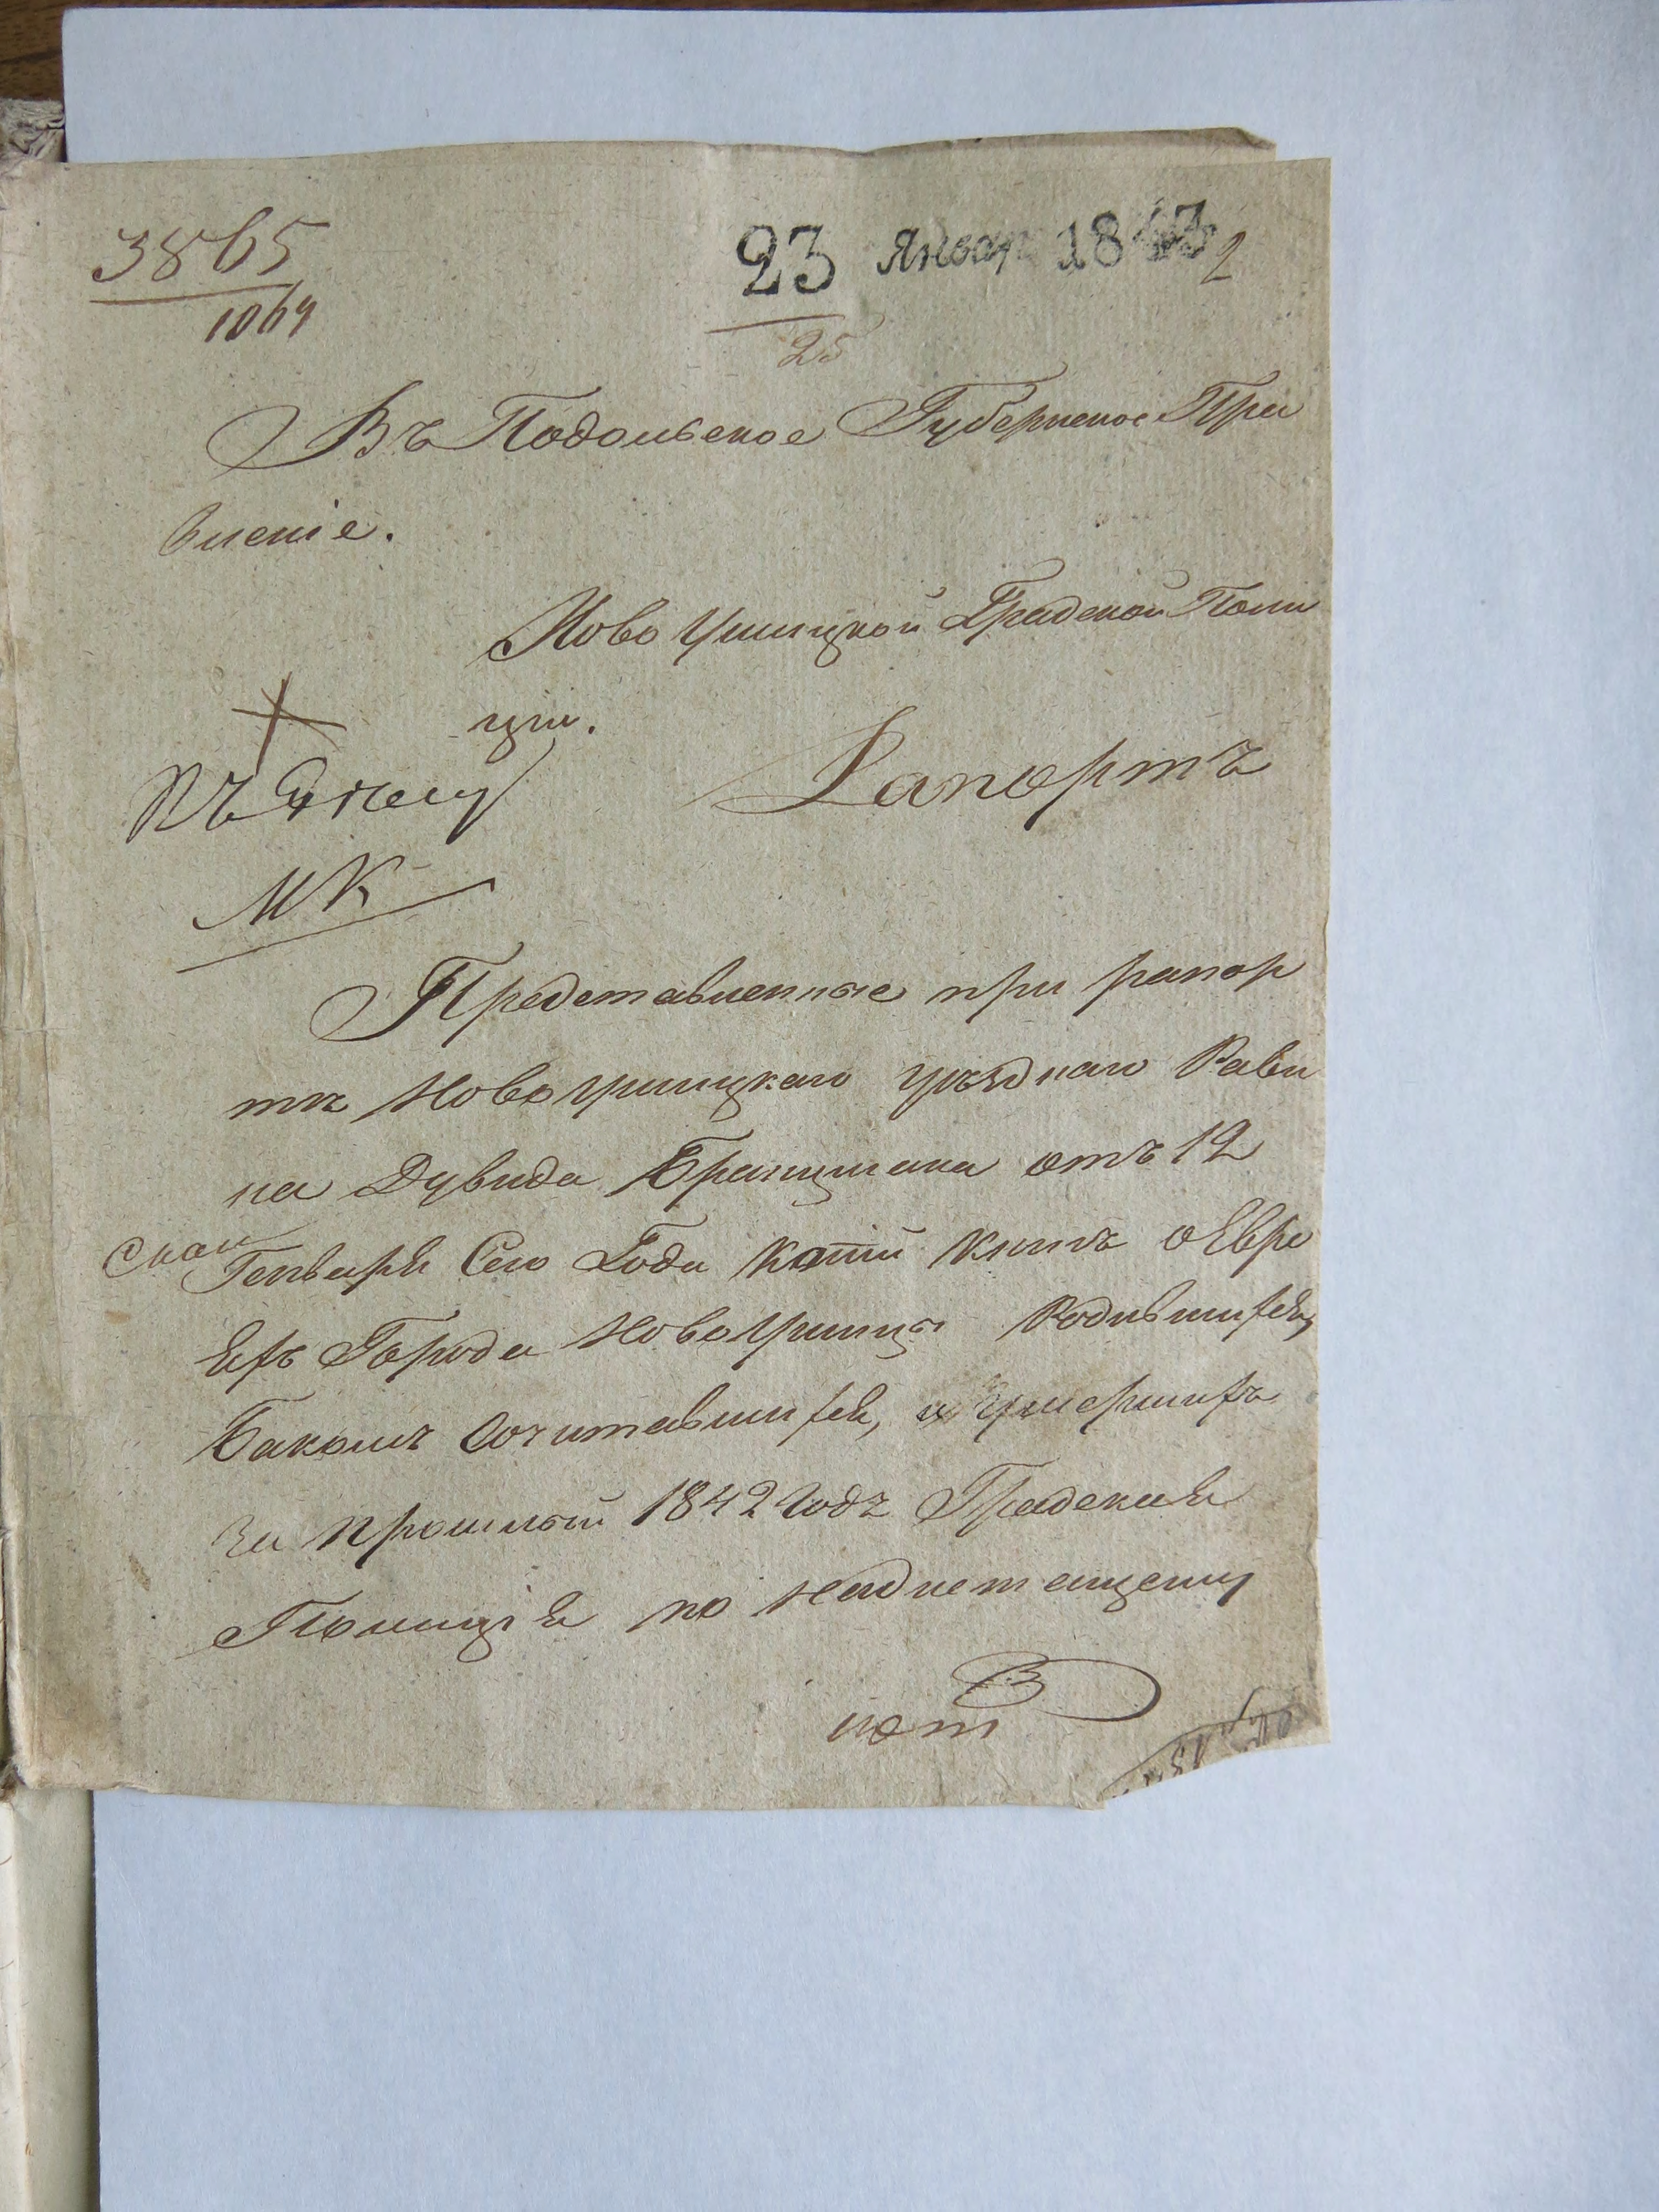 3865
1069
23 Январ 1843
2
25
Въ Подольское Губернское Пра
вленіе.
Ново Ушицкой Градской Поли
ціи.
Рапортъ
МК
Представленные при рапор
тѣ Ново Ушицкаго уѣзднаго Рави
на Дувида Бранцмана отъ 12
Генваря Сего Года Копіи Книгъ о Евре
яхъ Города Ново Ушицы Родившихся,
Бракомъ Сочитавшихся, и Умершихъ
За прошлый 1842 Годъ Градская
Полиція по Надлежащему